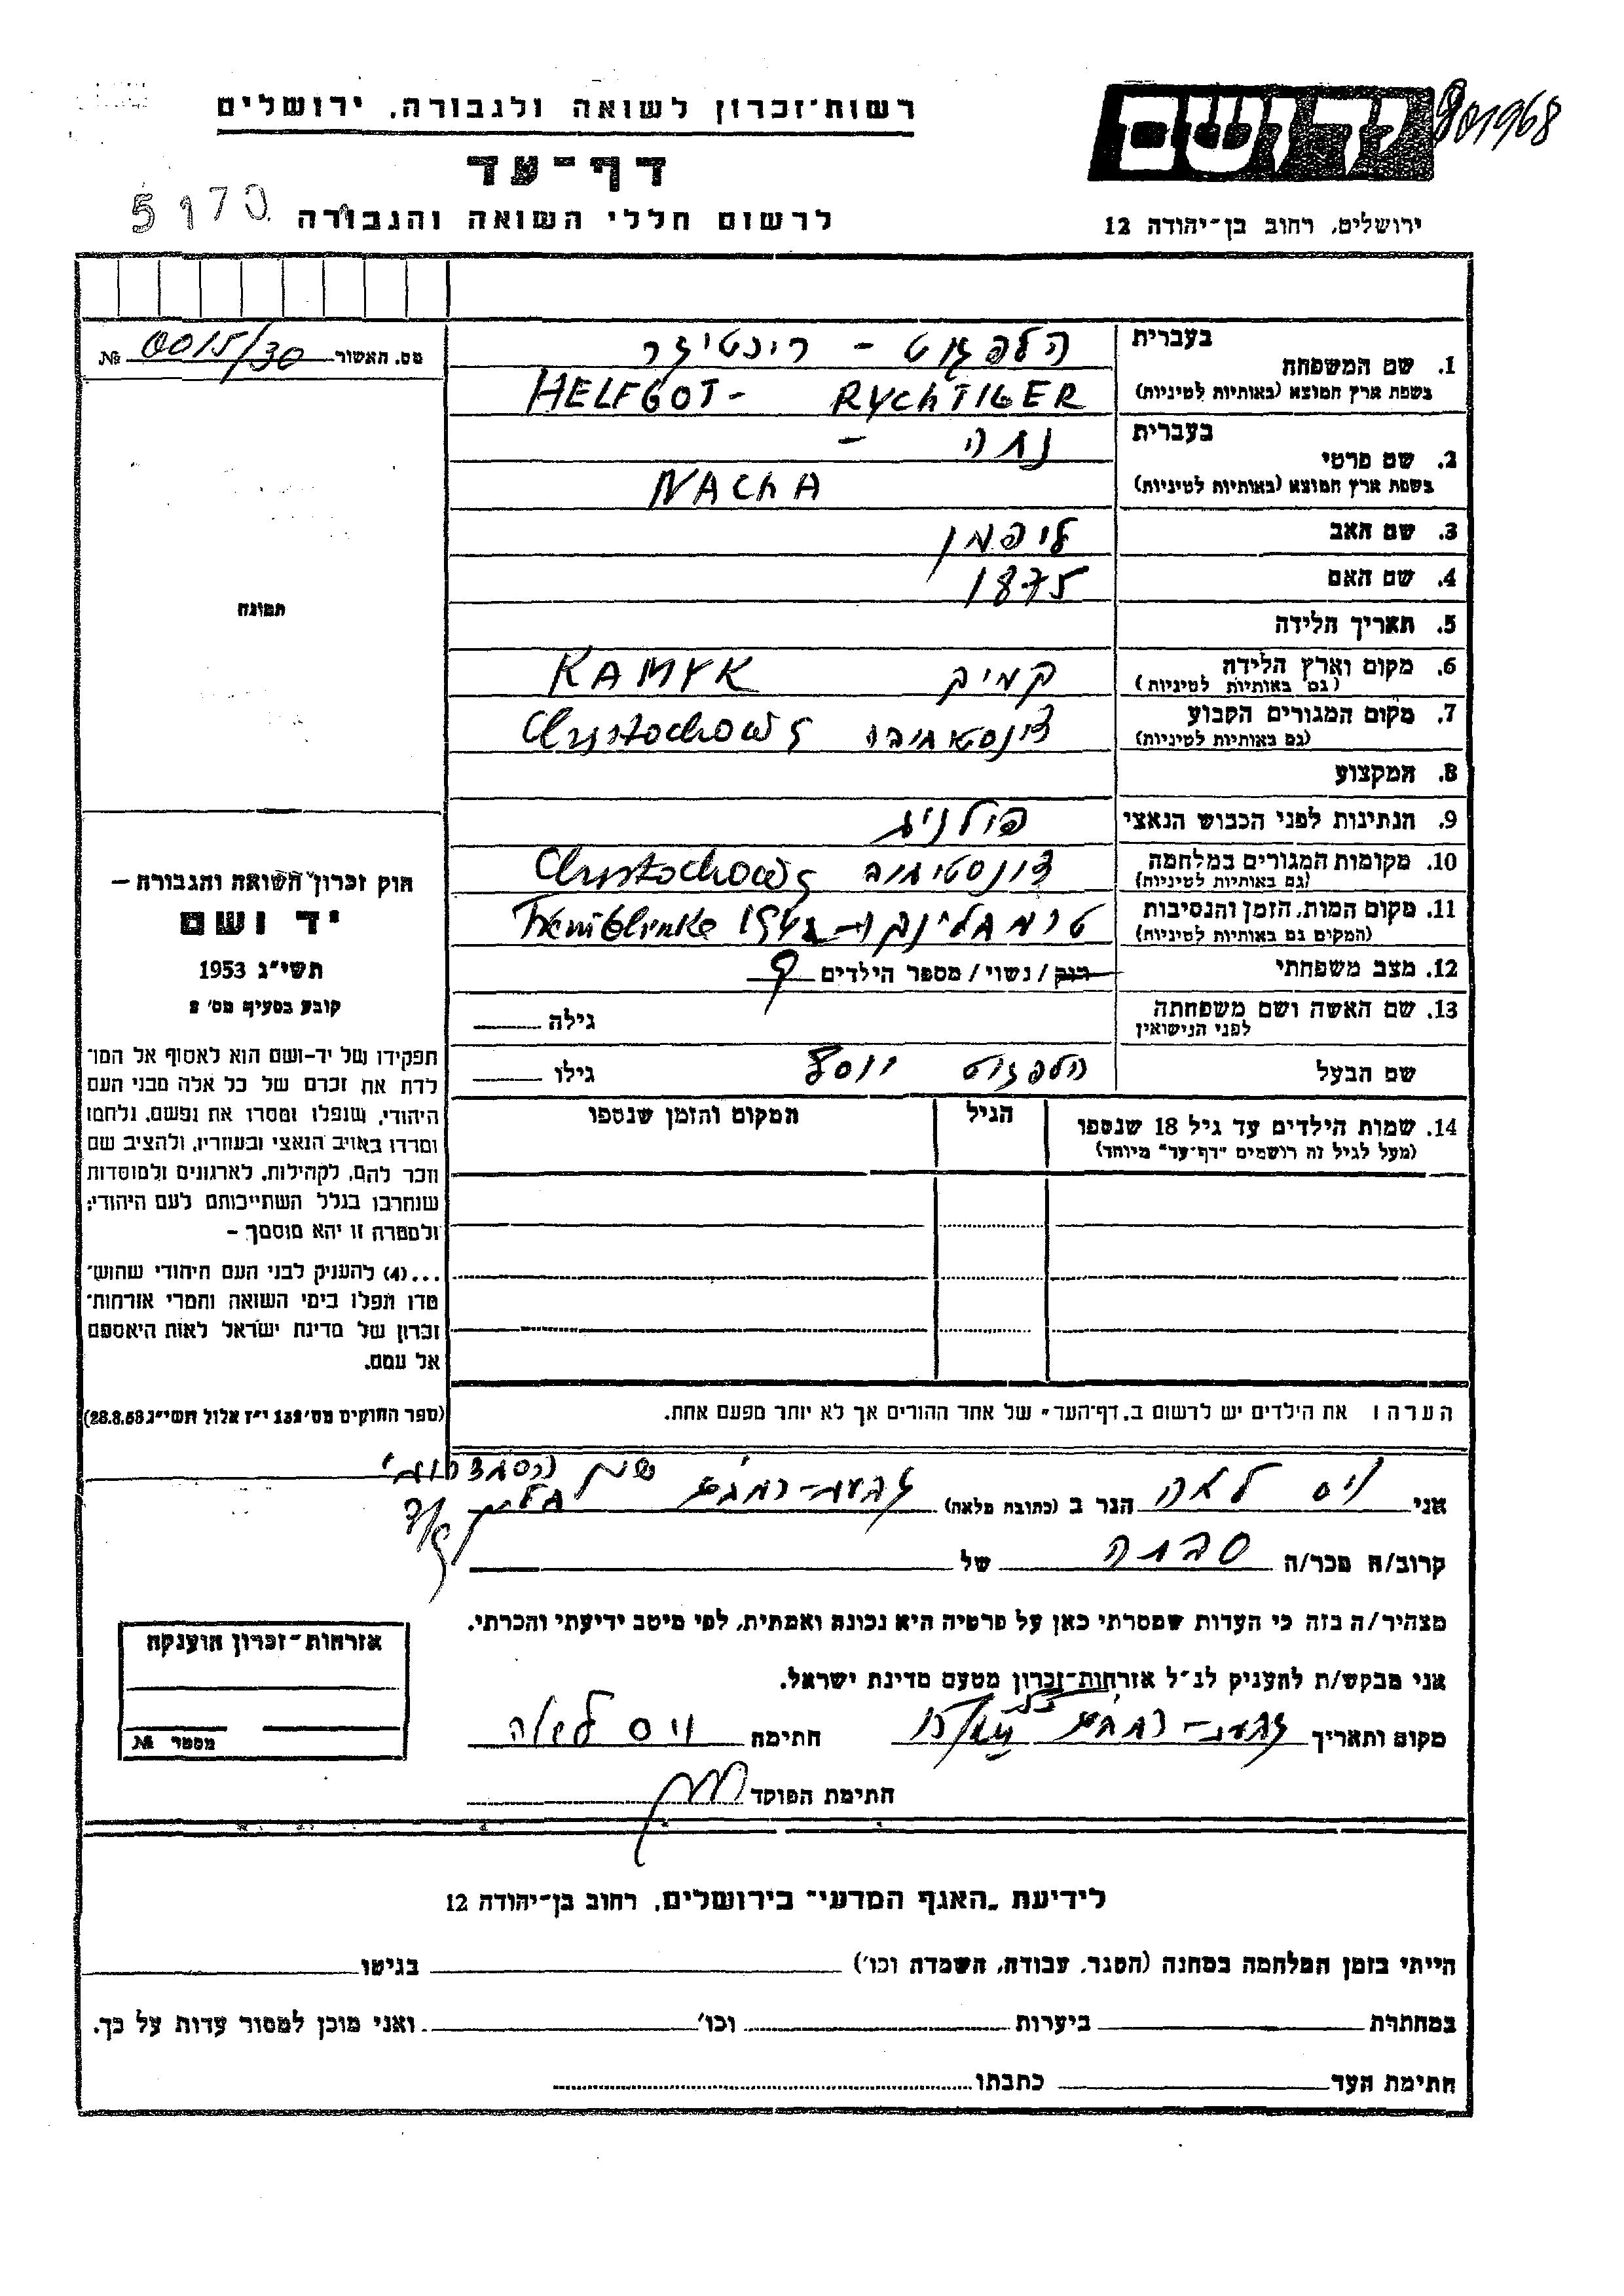 רשות־זכרון לשואה ולגבורה, ירושלים
יד ושם
901968
דף־עד
5170
לרשום חללי השואה והגבורה
ירושלים, רחוב בן־יהודה 12
מס. האשור 0015/30 №
1. שם המשפחה
בעברית הלפגוט - ריכטיגר
בשפת ארץ המוצא (באותיות לטיניות) HELFGOT- RYCHTIGER
2. שם פרטי
בעברית נחה -
בשפת ארץ המוצא (באותיות לטיניות) NACHA
3. שם האב ליפמן
4. שם האם 1875
5. תאריך הלידה
6. מקום וארץ הלידה
(גם באותיות לטיניות) קמיק KAMYK
7. מקום המגורים הקבוע
(גם באותיות לטיניות)
8. המקצוע
9. הנתינות לפני הכבוש הנאצי פולנית
10. מקומות המגורים במלחמה
(גם באותיות לטיניות)
11. מקום המות, הזמן והנסיבות
(המקום גם באותיות לטיניות) טרמבלינקה 1942
12. מצב משפחתי רוק / נשוי / מספר הילדים 9
13. שם האשה ושם משפחתה
לפני הנישואין גילה
שם הבעל הלפגוט יוסף גילו
14. שמות הילדים עד גיל 18 שנספו
(מעל לגיל זה רושמים "דף־עד" מיוחד)
הגיל
המקום והזמן שנספו
הערה: את הילדים יש לרשום ב„דף־העד" של אחד ההורים אך לא יותר מפעם אחת.
תמונה
חוק זכרון השואה והגבורה –
יד ושם
תשי"ג 1953
קובע בסעיף מס' 2
תפקידו של יד-ושם הוא לאסוף אל המו־
לדת את זכרם של כל אלה מבני העם
היהודי, שנפלו ומסרו את נפשם, נלחמו
ומרדו באויב הנאצי ובעוזריו, ולהציב שם
וזכר להם, לקהילות, לארגונים ולמוסדות
שנחרבו בגלל השתייכותם לעם היהודי;
ולמטרה זו יהא מוסמך –
...(4) להעניק לבני העם היהודי שהוש־
מדו ונפלו בימי השואה והמרי אזרחות־
זכרון של מדינת ישראל לאות היאספם
אל עמם.
(ספר החוקים מס' 132 י"ז אלול תשי"ג 28.8.53)
אני ויס לאה הגר ב (כתובת מלאה) גבעת-רמבם
קרוב/ה מכר/ה סבתה של
מצהיר/ה בזה כי העדות שמסרתי כאן על פרטיה היא נכונה ואמתית, לפי מיטב ידיעתי והכרתי.
אני מבקש/ת להעניק לנ"ל אזרחות־זכרון מטעם מדינת ישראל.
מקום ותאריך גבעת-רמבם חתימה ויס לאה
חתימת הפוקד
אזרחות־זכרון הוענקה
מספר №
לידיעת „האגף המדעי" בירושלים, רחוב בן־יהודה 12
הייתי בזמן המלחמה במחנה (הסגר, עבודה, השמדה וכו') בגיטו
במחתרת ביערות וכו' ואני מוכן למסור עדות על כך.
חתימת העד כתבתו